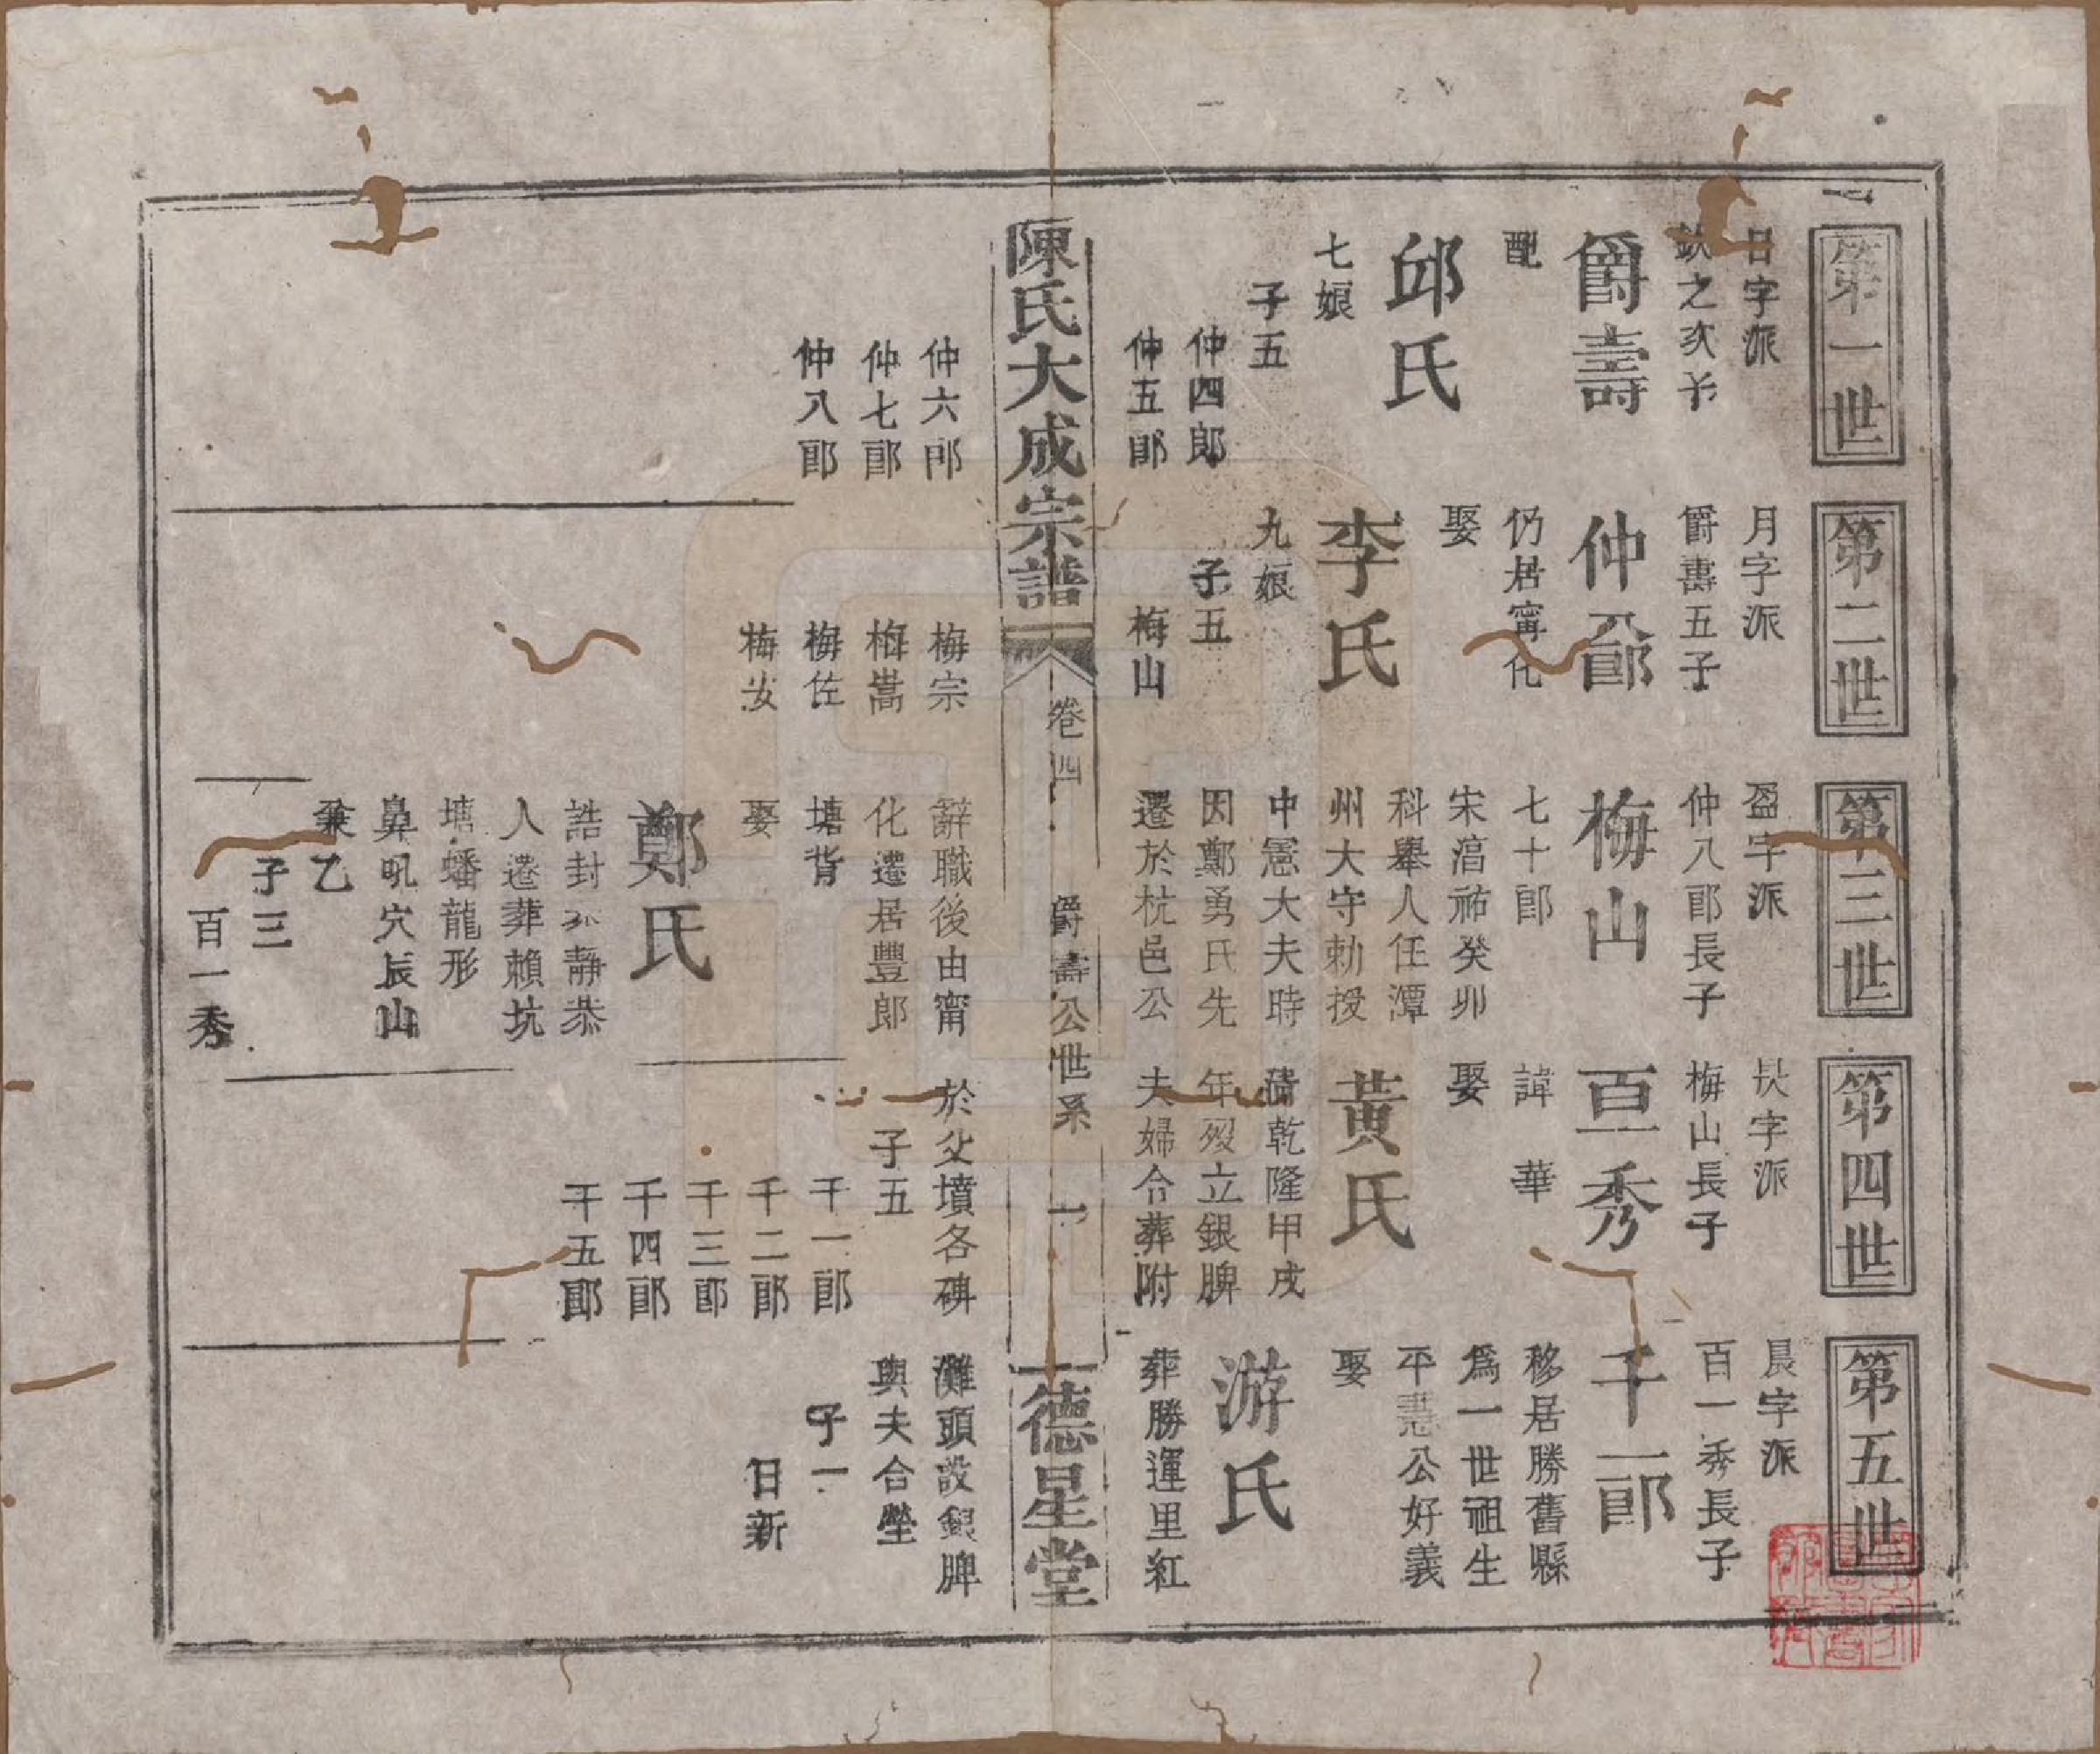 第一世
日字派
之次子
爵壽
配
邱氏
七娘
子五
仲四郎
仲五郎
仲六郎
仲七郎
仲八郎
第二世
月字派
爵壽五子
仲八郎
仍居寧化
娶
李氏
九娘
子五
梅山
梅宗
梅嵩
梅佐
梅安
第三世
盈字派
仲八郎長子
梅山
七十郎
宋淳祐癸卯
科舉人任潭
州大守勅授
中憲大夫時
因鄭勇氏先
遷於杭邑公
辭職後由甯
化遷居豐郎
塘背
娶
鄭氏
誥封 靜恭
人遷葬賴坑
塘蟠龍形
鼻吼穴辰山
兼乙
子三
百一秀
第四世
昃字派
梅山長子
百一秀
諱 華
娶
黃氏
清乾隆甲戌
年改立銀牌
夫婦合葬附
於父墳各碑
子五
千一郎
千二郎
千三郎
千四郎
千五郎
第五世
辰字派
百一秀長子
千一郎
移居勝舊縣
爲一世祖生
平 公好義
娶
游氏
葬勝運里紅
灘頭設銀牌
與夫合塋
子一
日新
陳氏大成宗譜
卷四
爵壽公世系
一
德星堂